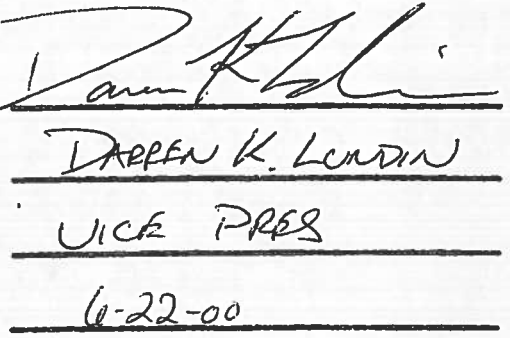 Darren K Lundin
DARREN K. LUNDIN
VICE PRES
6-22-00